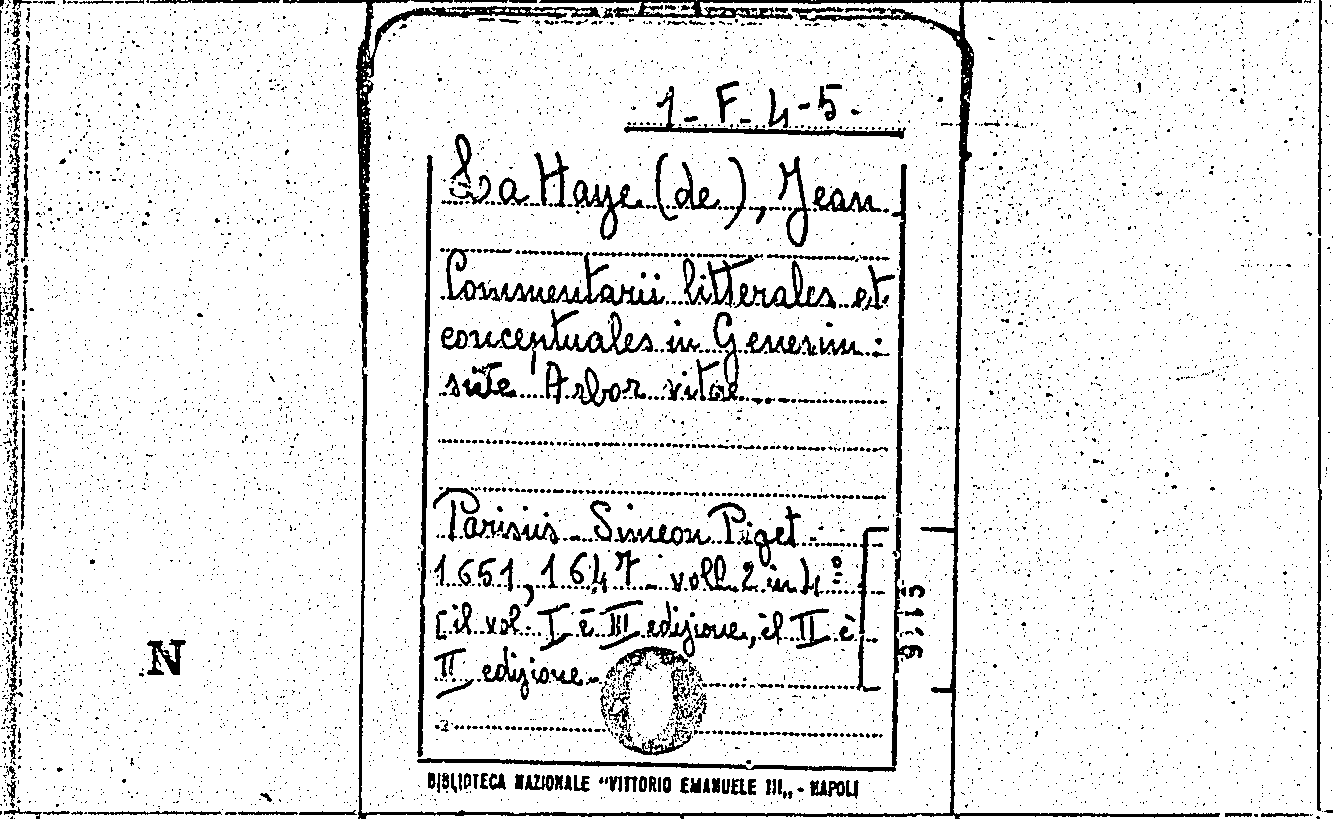 1-F-4-5.
La Haye (de), Jean
Commentarii litterales et
conceptuales in Genesim:
sive Arbor vitae...
Parisiis - Simeon Piget -
1651, 1647 - voll. 2 in 4°
[il vol. I è III edizione, il II è
II edizione -
5116
N
BIBLIOTECA NAZIONALE "VITTORIO EMANUELE III„ - NAPOLI